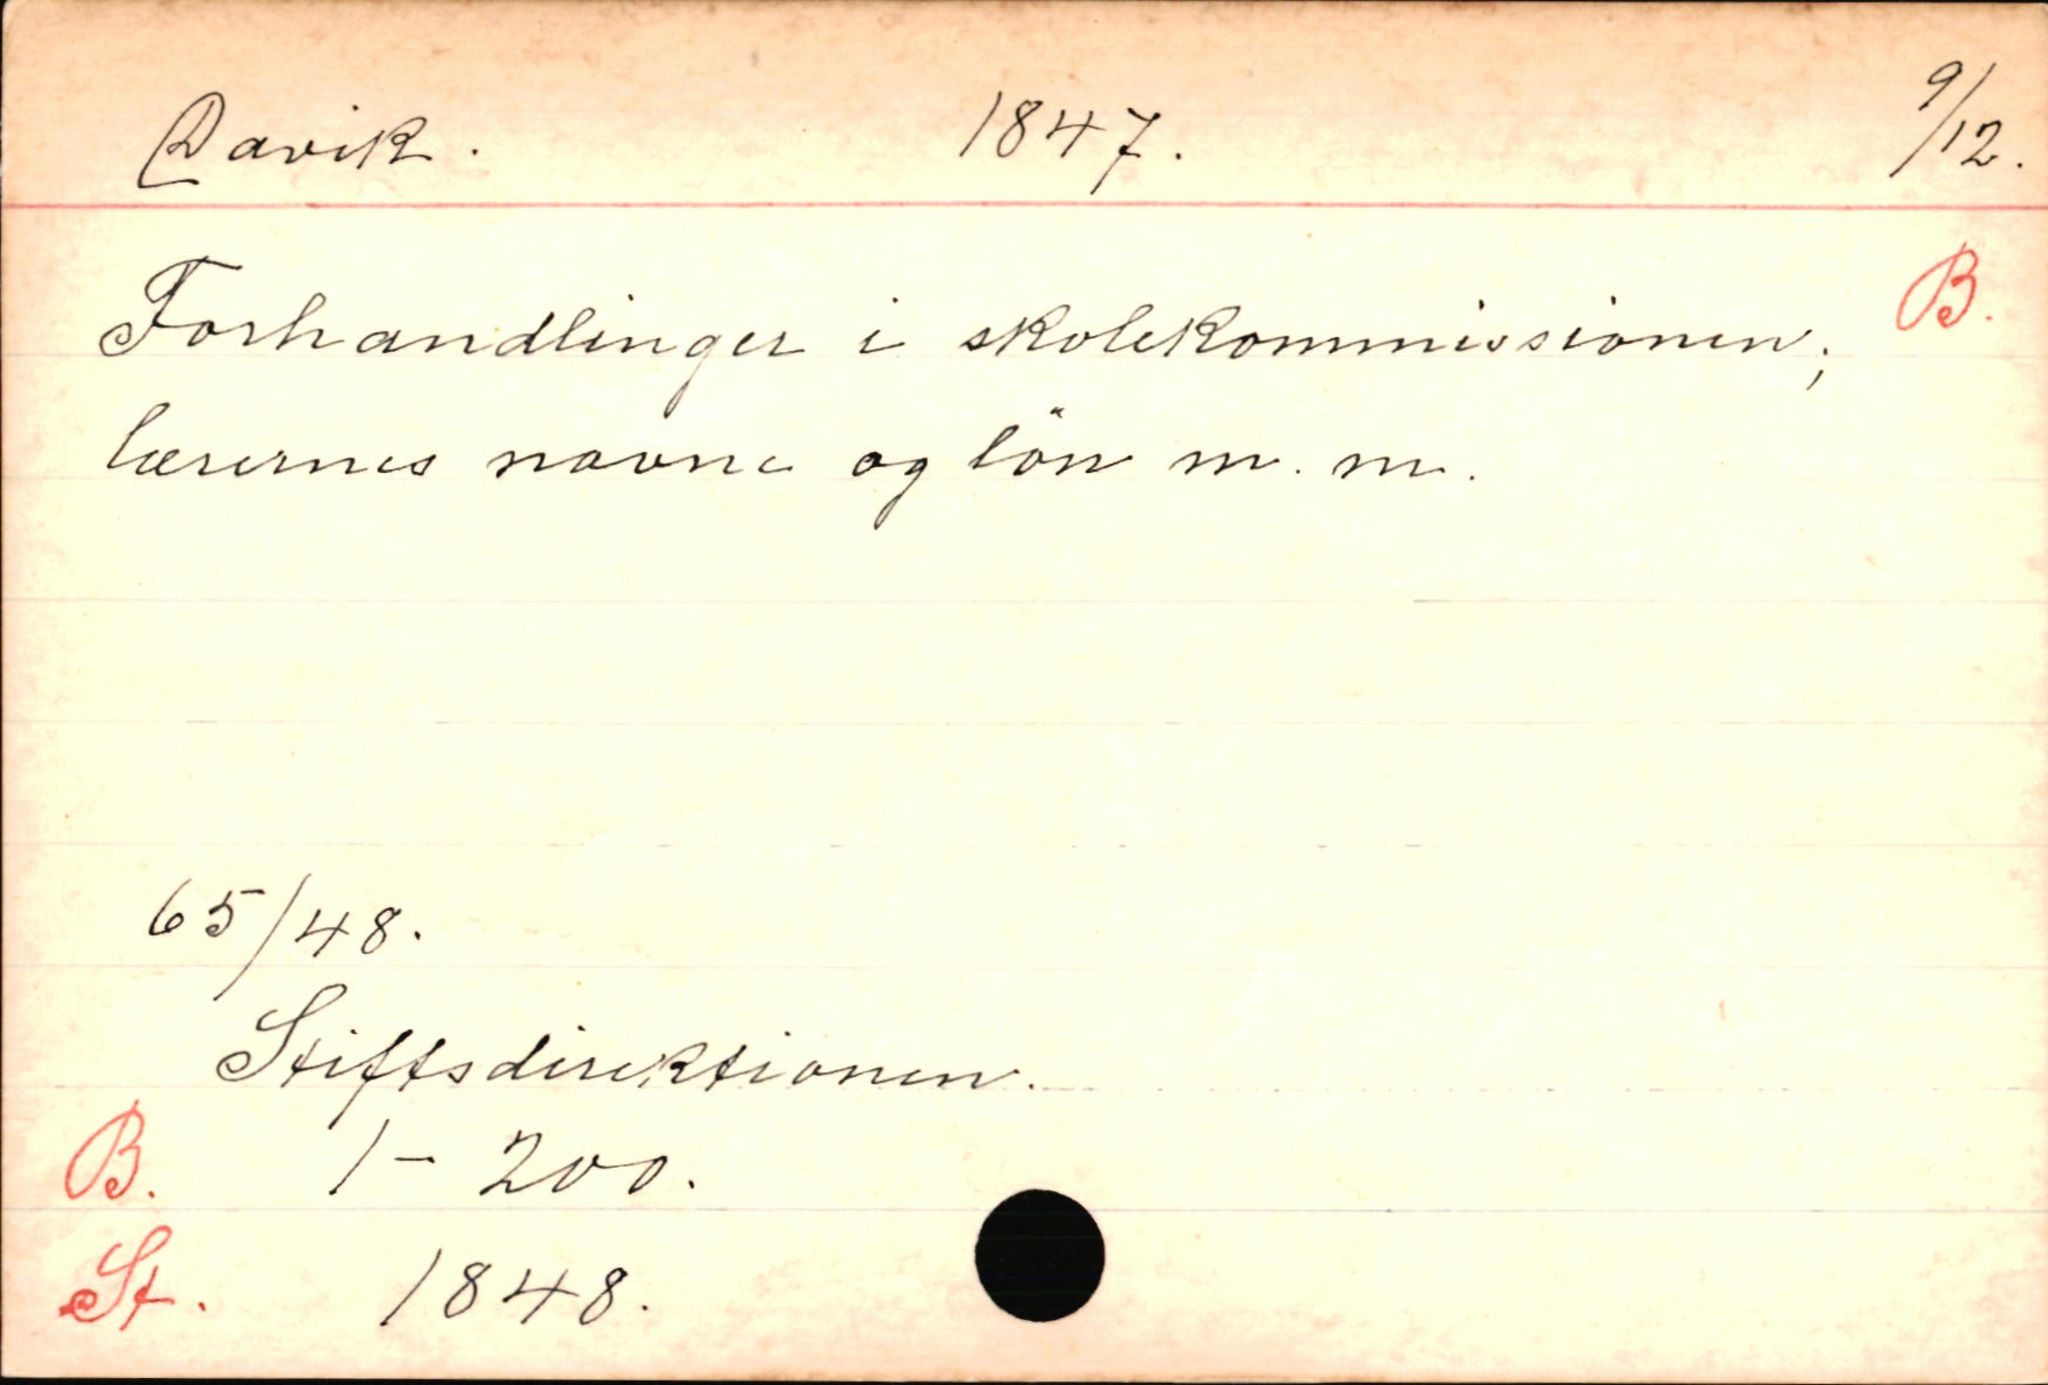 Davik. 1847. 9/12.
B.
Forhandlinger i skolekommissionen;
lærernes navne og lön m. m.
65/48.
Stiftsdirektionen.
B. 1-200.
St. 1848.